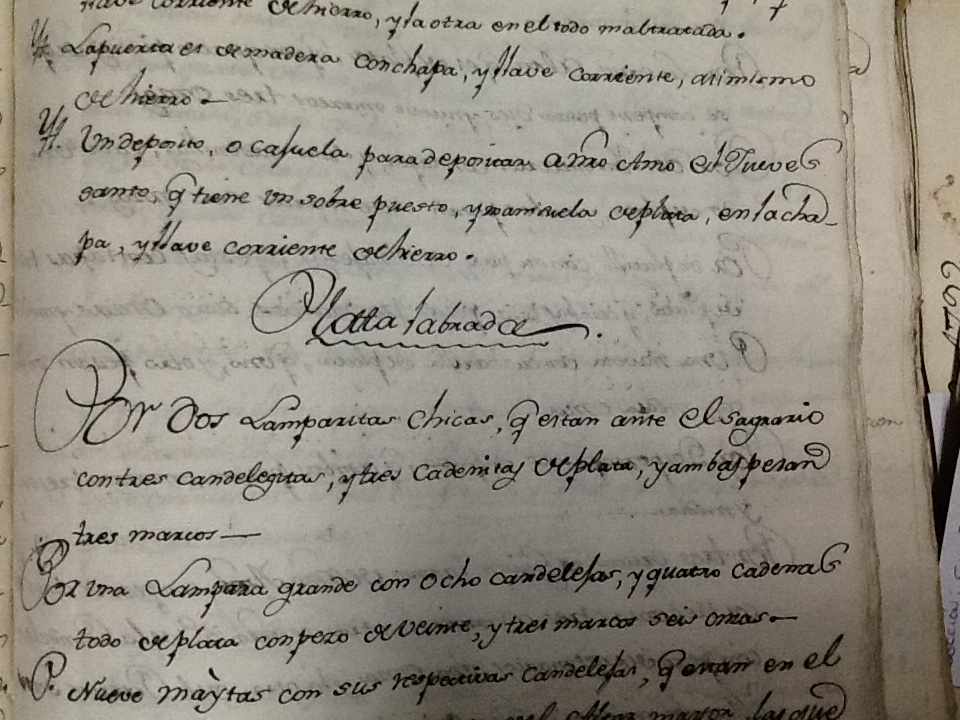 llave corriente de hierro, y la otra en el todo maltratada.
Yt. La puerta es de madera con chapa, y llave corriente, asimismo
de hierro
Yt. Un deposito, o casuela para depositar a nro Amo el Jueves
santo, q tiene un sobre puesto, y mansuela de plata, en la cha-
pa, y llave corriente de hierro.
Plata labrada.
Por dos Lamparitas chicas, q estan ante el sagrario
con tres candelegitas, y tres cadenitas de plata, y ambas pesan
tres marcos
Por una Lampara grande con ocho candelesas, y quatro cadenas
todo de plata con pezo de veinte, y tres marcos seis onsas
P. Nueve maytas con sus respectivas candelesas, q estan en el
el Altar mayor las que